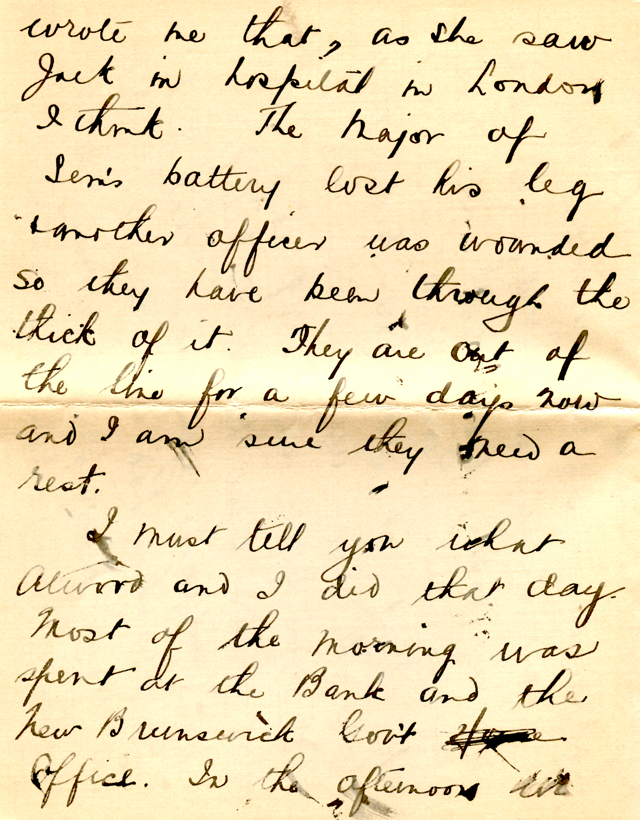 wrote me that, as she saw
Jack in hospital in London
I think. The Major of
Len's battery lost his leg
& another officer was wounded
so they have been through the
thick of it. They are out of
the line for a few days now
and I am sure they need a
rest.
I must tell you what
Atwood and I did that day.
Most of the morning was
spent at the Bank and the
New Brunswick Gov't
Office. In the afternoon we